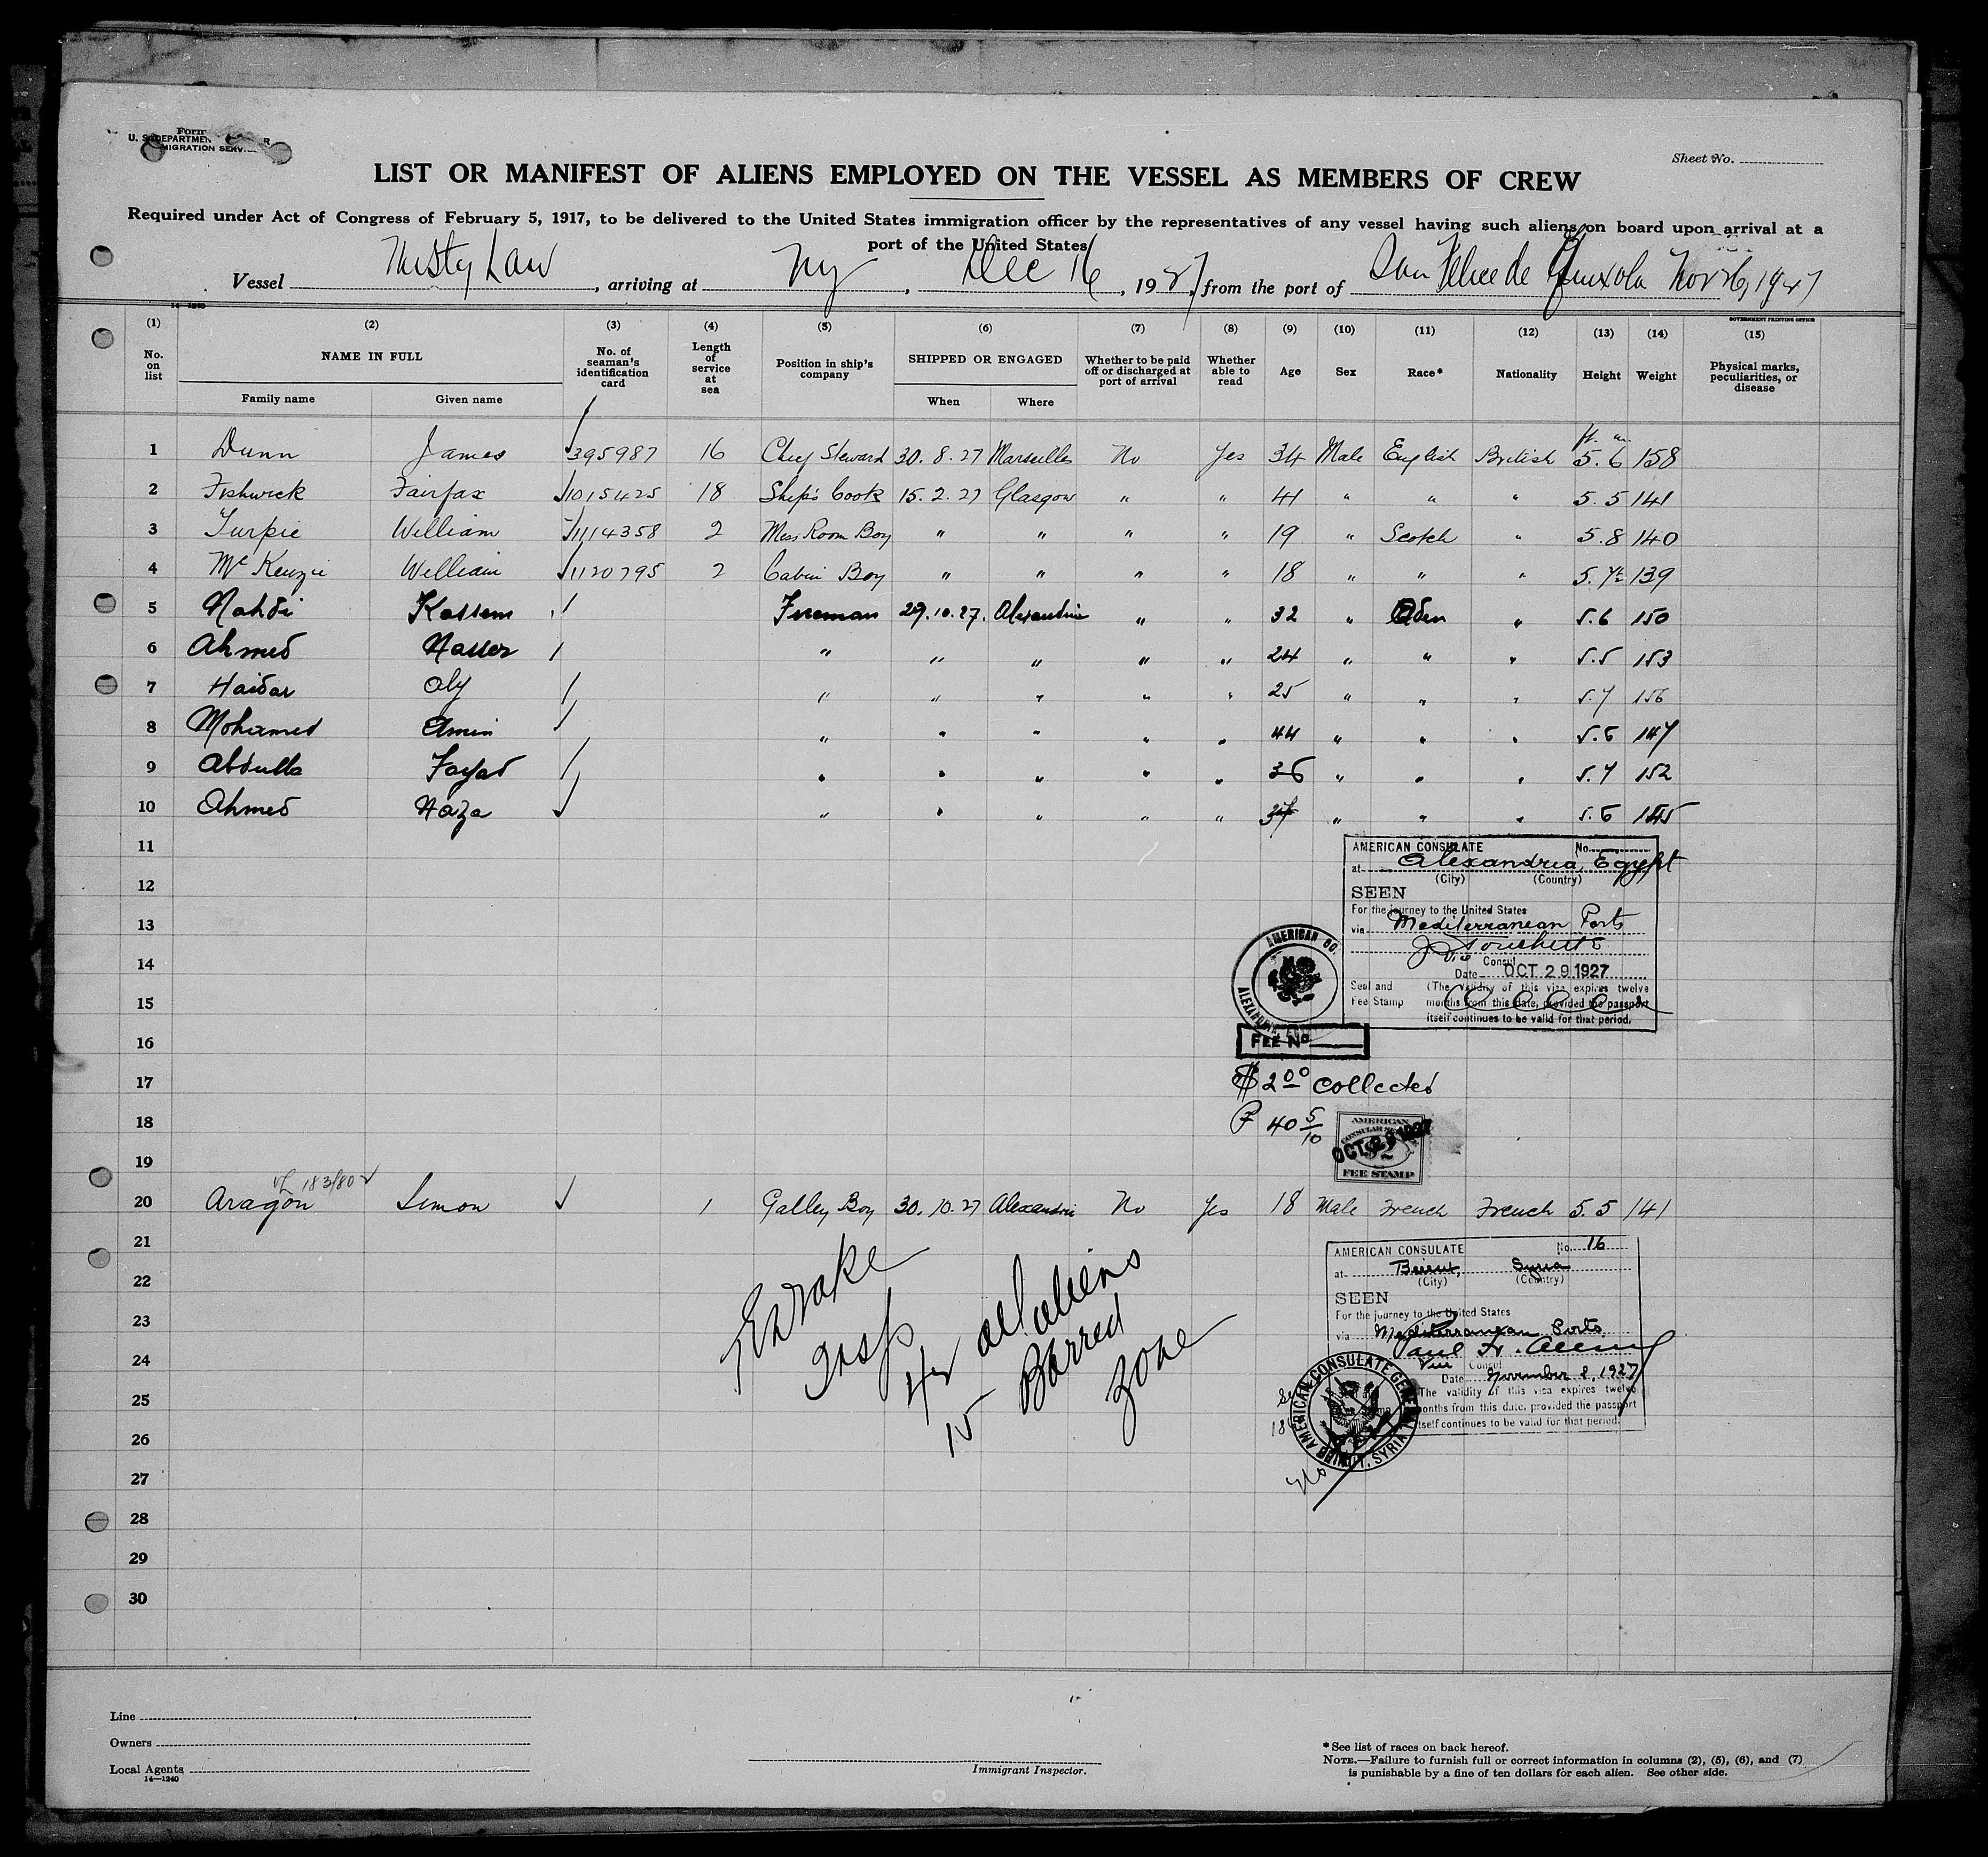 Form
U. S. DEPARTMEN R
MIGRATION SERV
Sheet No.
LIST OR MANIFEST OF ALIENS EMPLOYED ON THE VESSEL AS MEMBERS OF CREW
Required under Act of Congress of February 5, 1917, to be delivered to the United States immigration officer by the representatives of any vessel having such aliens on board upon arrival at a
port of the United States
Vessel Misty Law, arriving at Ny, Dec 16, 1927, from the port of San Feliu de Guixols Nov 26, 1927
14-1240
GOVERNMENT PRINTING OFFICE
(1) (2) (3) (4) (5) (6) (7) (8) (9) (10) (11) (12) (13) (14) (15)
No. on list NAME IN FULL No. of seaman's identification card Length of service at sea Position in ship's company SHIPPED OR ENGAGED Whether to be paid off or discharged at port of arrival Whether able to read Age Sex Race* Nationality Height Weight Physical marks, peculiarities, or disease
Family name Given name When Where
ft. in.
1 Dunn James 395987 16 Chief Steward 30.8.27 Marseilles No Yes 34 Male English British 5.6 158
2 Fishwick Fairfax 1015425 18 Ship's Cook 15.2.27 Glasgow " " 41 " " " 5.5 141
3 Turpie William 1114358 2 Mess Room Boy " " " " 19 " Scotch " 5.8 140
4 McKenzie William 1120795 2 Cabin Boy " " " " 18 " " " 5.7½ 139
5 Nahdi Kassem Fireman 29.10.27. Alexandria " " 32 " Aden " 5.6 150
6 Ahmed Nasser " " " " " 24 " " " 5.5 153
7 Haidar Aly " " " " " 25 " " " 5.7 156
8 Mohamed Amin " " " " " 44 " " " 5.6 147
9 Abdulla Fayad " " " " " 36 " " " 5.7 152
10 Ahmed Naza " " " " " 37 " " " 5.6 145
11
12
13
14
15
16
17
18
19
AMERICAN CONSULATE No.
at Alexandria, Egypt
(City) (Country)
SEEN
For the journey to the United States
via Mediterranean Ports
Vice Consul
Date OCT 29 1927
Seal and Fee Stamp
(The validity of this visa expires twelve
months from this date, provided the passport
itself continues to be valid for that period.
AMERICAN CO.
ALEXANDRIA, EGYPT
FEE No
$ 2.00 collected
P 40 5/10
AMERICAN
CONSULAR SE
OCT 29 1927
$2
FEE STAMP
183/80
20 Aragon Simon 1 Galley Boy 30.10.27 Alexandria No Yes 18 Male French French 5.5 141
21
22
23
24
25
26
27
28
29
30
all aliens
15 Barred
zone
AMERICAN CONSULATE No. 16
at Beirut, Syria
(City) (Country)
SEEN
For the journey to the United States
via Mediterranean Ports
Paul H. Alling
Vice Consul
Date November 8, 1927
The validity of this visa expires twelve
months from this date, provided the passport
itself continues to be valid for that period.
AMERICAN CONSULATE GENERAL
BEIRUT, SYRIA
No
Line
Owners
Local Agents
14—1240
Immigrant Inspector.
*See list of races on back hereof.
NOTE.—Failure to furnish full or correct information in columns (2), (5), (6), and (7)
is punishable by a fine of ten dollars for each alien. See other side.